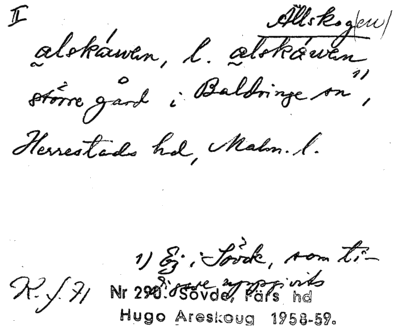 II
Älskog(en)
alskáwen, l. alskáwen
större gård i Baldringe sn 1),
Herrestads hd, Malm. l.
1) Ej i Sövde, som ti-
digare uppgivits
R. f. 71
Nr 290. Sövde, Färs hd
Hugo Areskoug 1958-59.